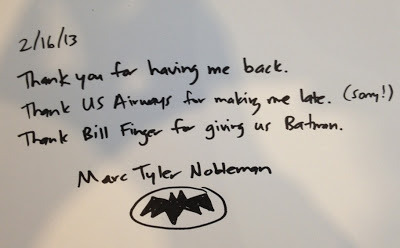 2/16/13
Thank you for having me back.
Thank US Airways for making me late. (sorry!)
Thank Bill Finger for giving us Batman.
Marc Tyler Nobleman